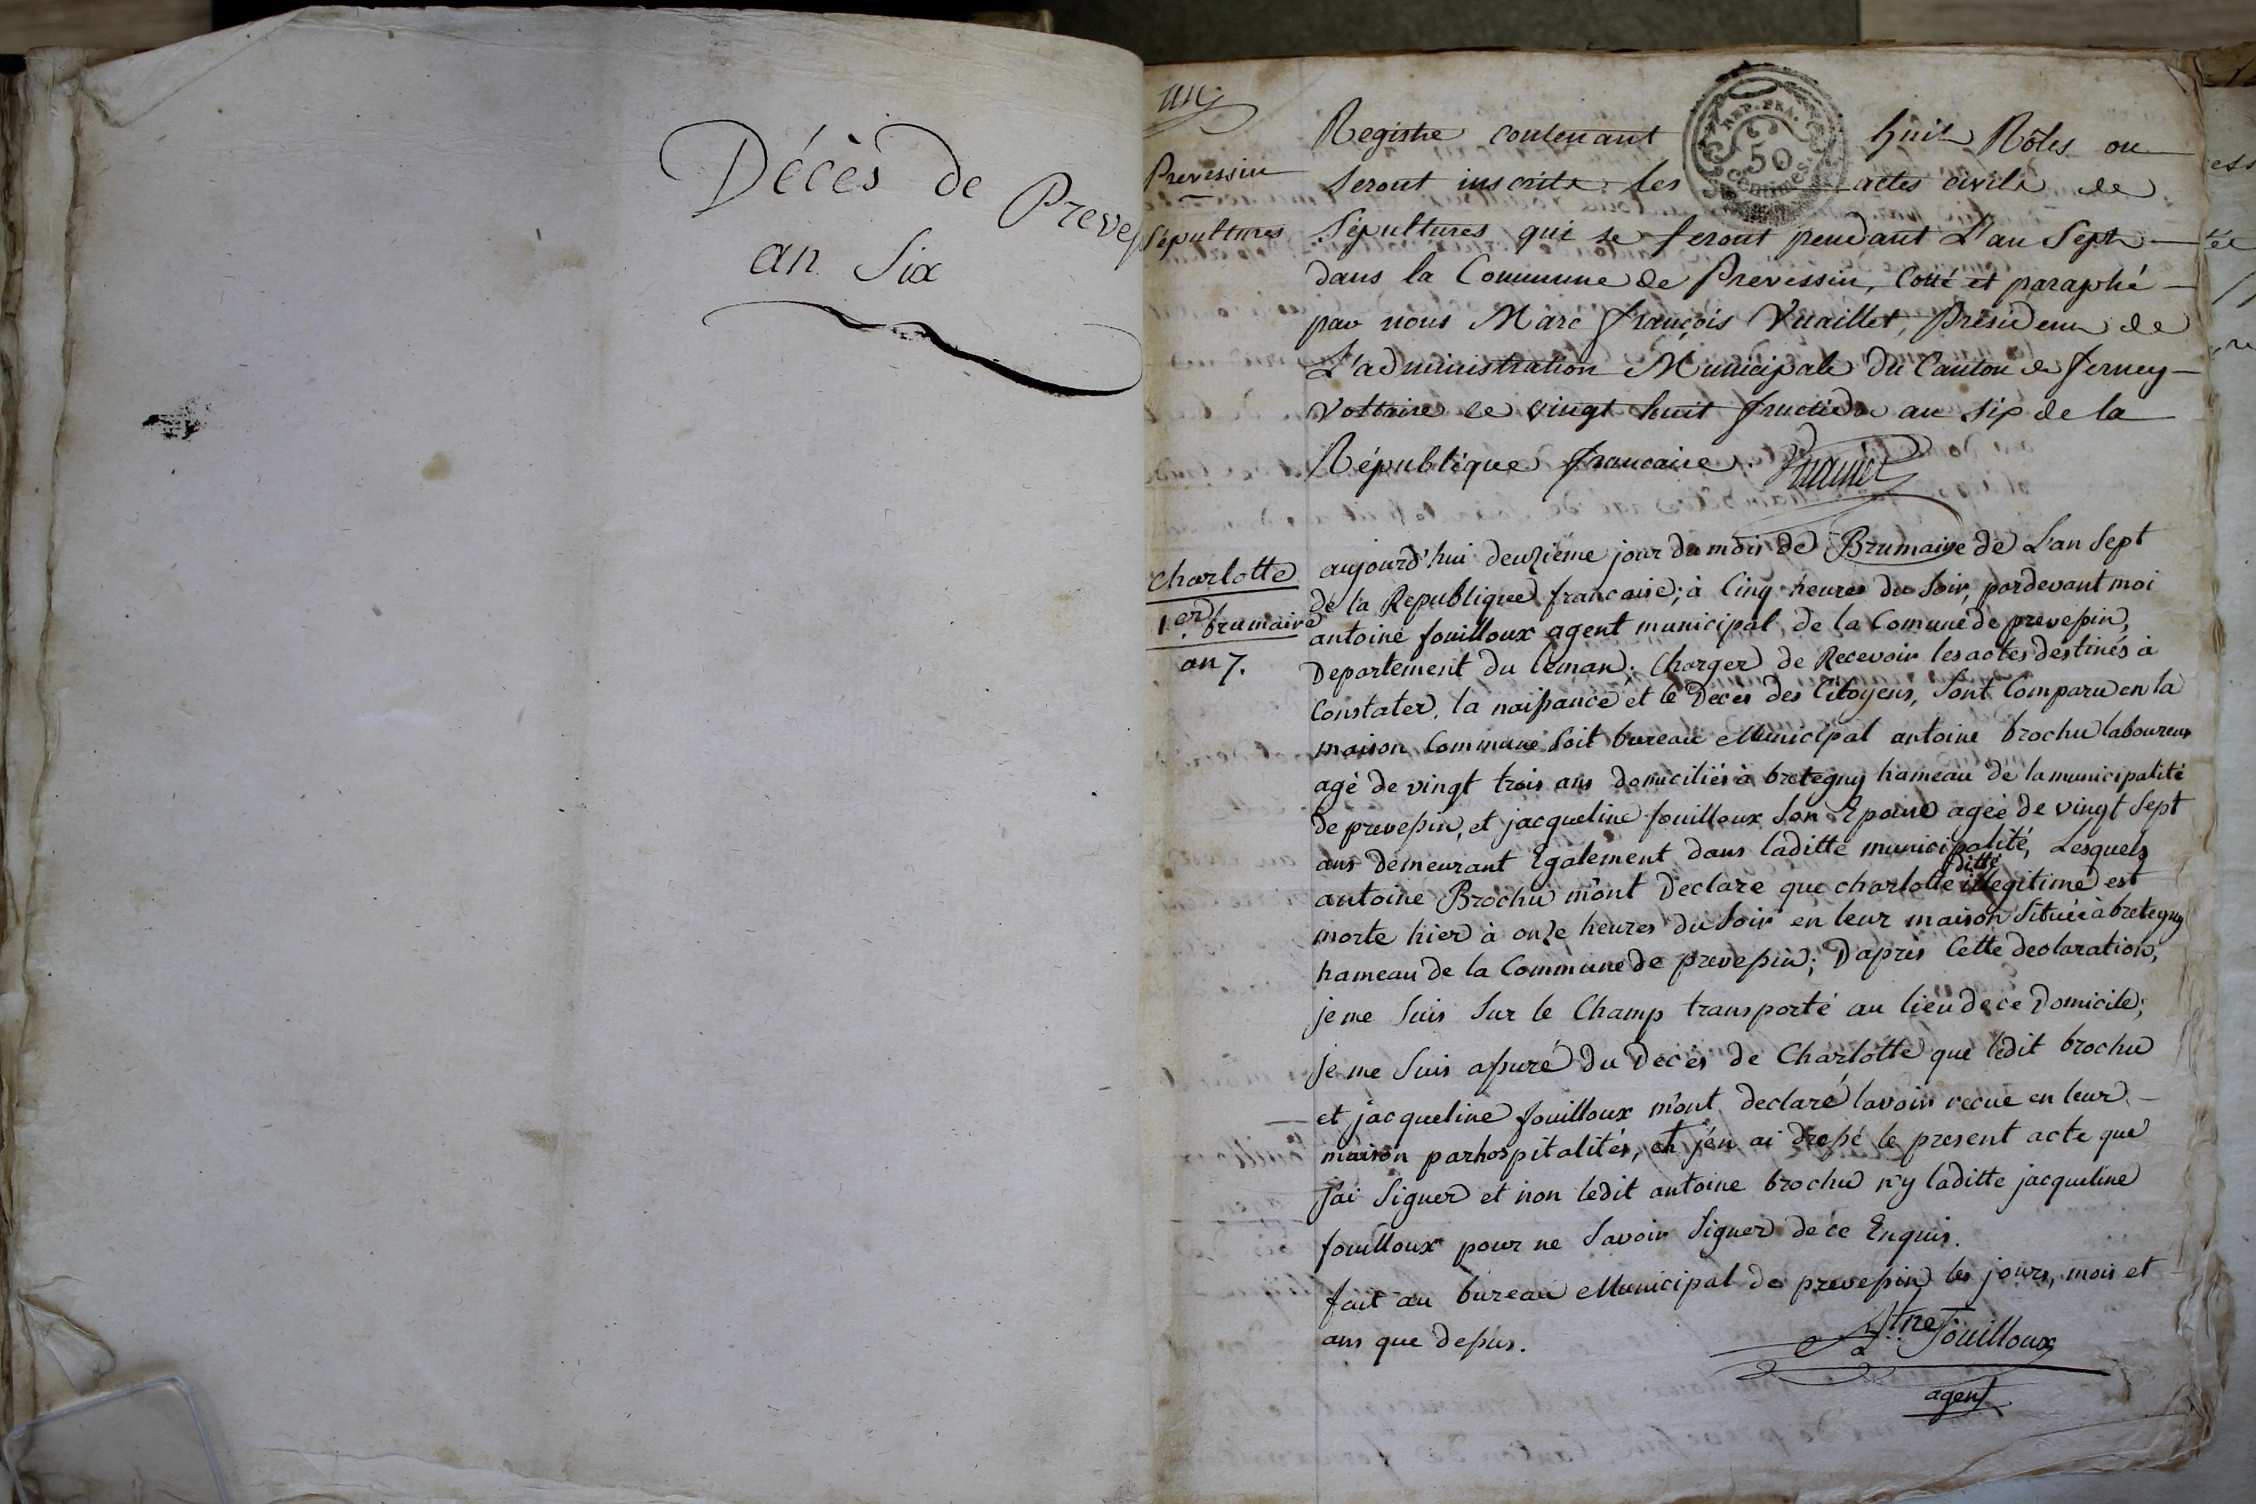 Décès de Prevess
an Six
un
Prevessin
Sépultures
REP. FRA.
50
centimes.
Registre contenant huit Rôles ou
seront inscrits les actes civils de
Sépultures qui se feront pendant L'an Sept
dans la Commune de Prevessin, Cotté et paraphé
par nous Marc françois Vuaillet, Président de
L'administration Municipale du Canton de Ferney-
Voltaire le vingt huit fructidor an six de la
République francaise. Vuaillet
Charlotte
1er. brumaire
an 7.
aujourd'hui deuzième jour du mois de Brumaire de L'an Sept
de la Republique francaise; à Cinq heures du Soir, pardevant moi
antoine fouilloux agent municipal de la Comune de prevessin,
Departement du Léman; Charger de Recevoir les actes destinés à
Constater, la naissance et le Deces des Citoyens, Sont Comparu en la
maison Commune Soit bureau Municipal antoine brochu laboureur
agé de vingt trois ans domiciliés à bretegny hameau de la municipalité
de prevessin, et jacqueline fouilloux Son Epouse ageé de vingt Sept
ans demeurant Egalement dans laditte municipalité, Lesquels
antoine Brochu m'ont Declare que charlotte ditte illegitime est
morte hier à onze heures du Soir en leur maison Située à bretegny
hameau de la Commune de prevessin; D'apres Cette declaration,
je me Suis Sur le Champ transporté au lieu de ce Domicile;
je me Suis assuré du Decès de Charlotte que ledit brochu
et jacqueline fouilloux m'ont declaré lavoir recue en leur
maison par hospitalités, et j'en ai dressé le present acte que
j'ai Signer et non ledit antoine brochu n'y laditte jacqueline
fouilloux pour ne Savoir Signer de ce Enquis.
fait au bureau Municipal de prevessin les jours, mois et
ans que dessus.
Atne Fouilloux
agent